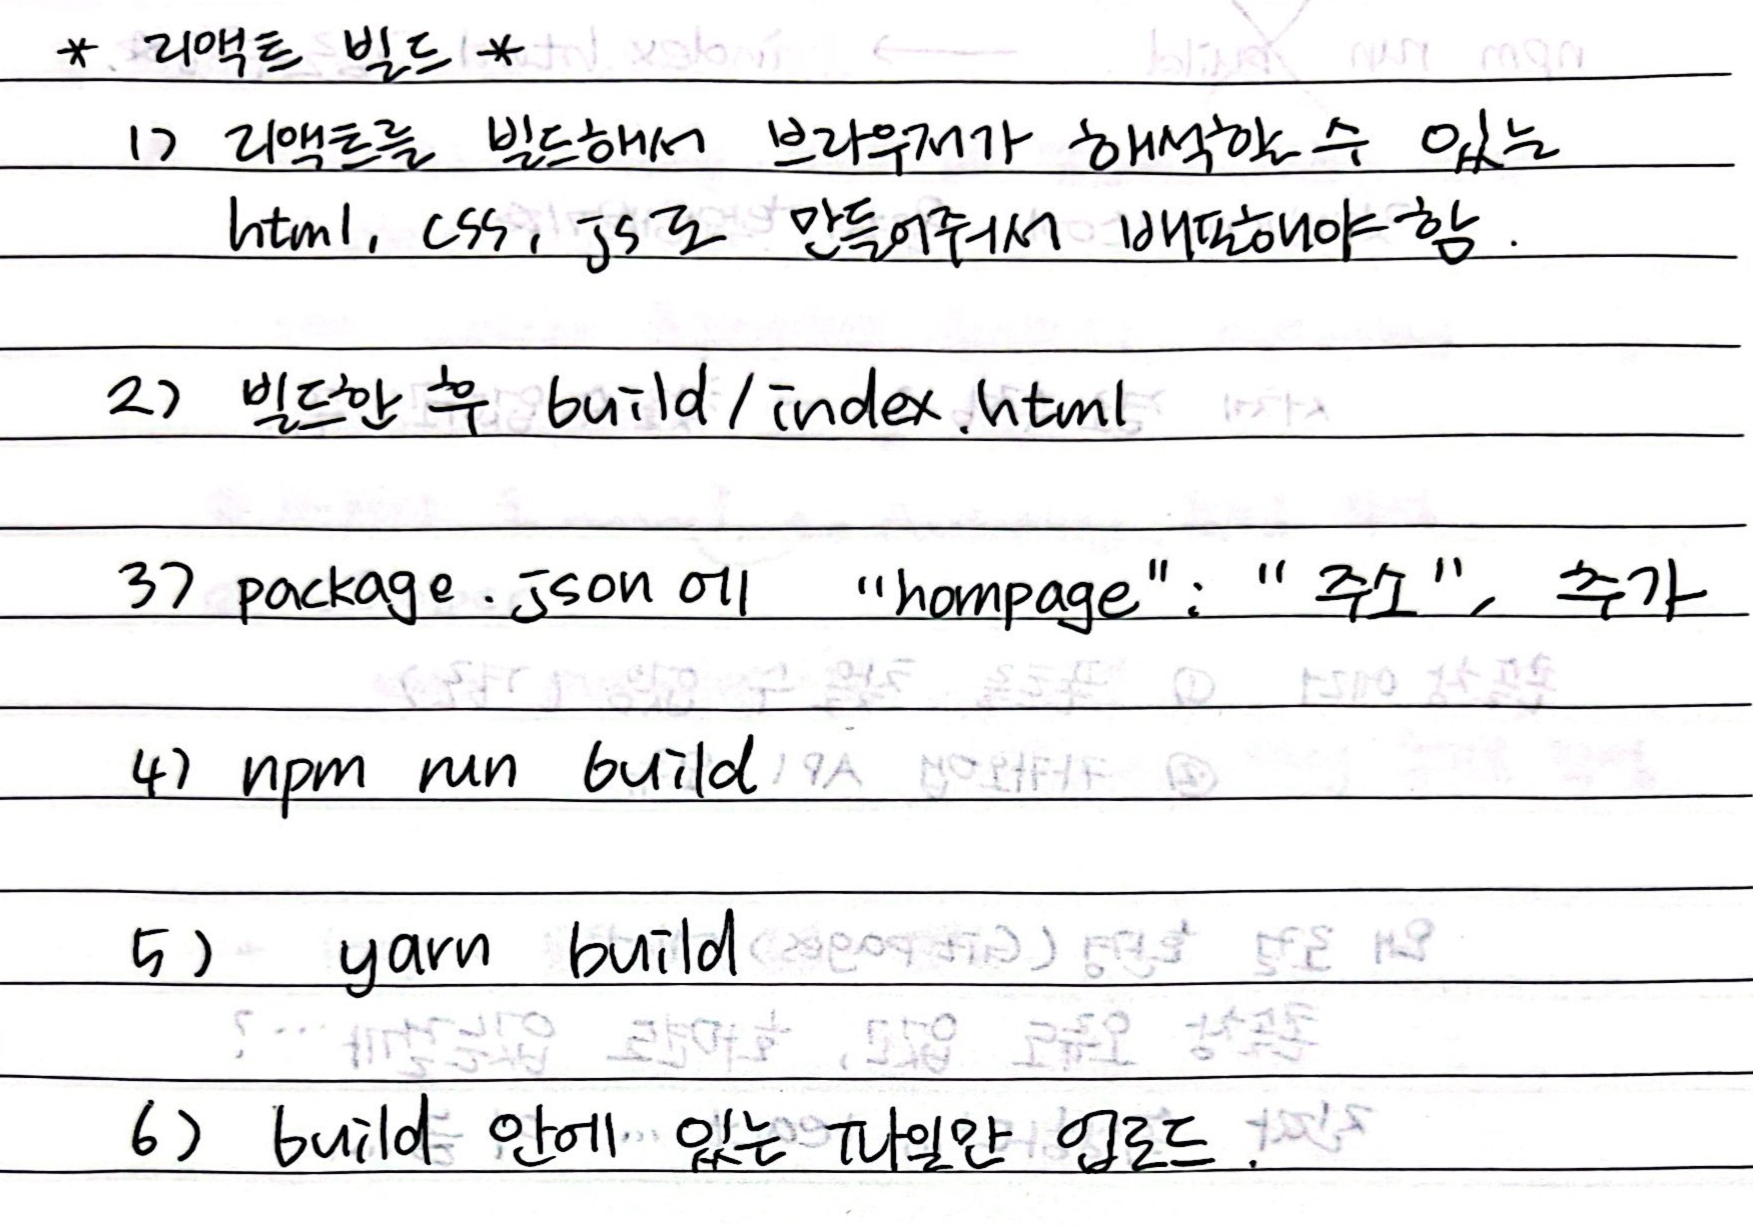 * 리액트 빌드 *
1) 리액트를 빌드해서 브라우저가 해석할 수 있는
html, css, js로 만들어줘서 배포해야 함.
2) 빌드한 후 build/index.html
3) package.json에 "hompage": "주소", 추가
4) npm run build
5) yarn build
6) build 안에 있는 파일만 업로드.